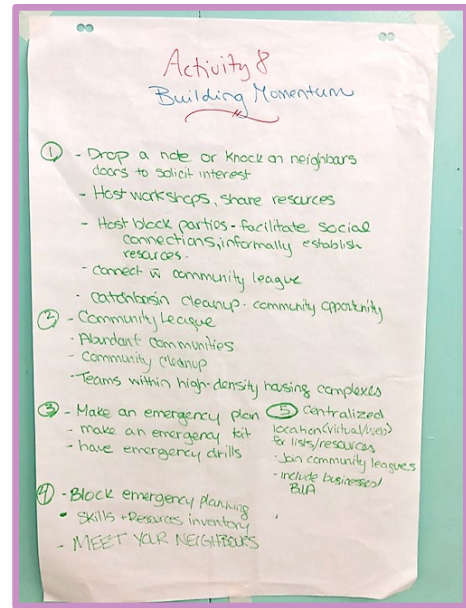 Activity 8
Building Momentum
① - Drop a note or knock on neighbors
doors to solicit interest
- Host workshops, share resources
- Host block parties - facilitate social
connections, informally establish
resources.
- connect w community league
- catchbasin cleanup - community opportunity
② - Community League
- Abundant communities
- Community Cleanup
- Teams within high-density housing complexes
③ - Make an emergency plan
- make an emergency kit
- have emergency drills
④ - Block emergency planning
• Skills + Resources inventory
- MEET YOUR NEIGHBOURS
⑤ Centralized
location (virtual/web)
for lists/resources
- Join community leagues
- include businesses/
BIA